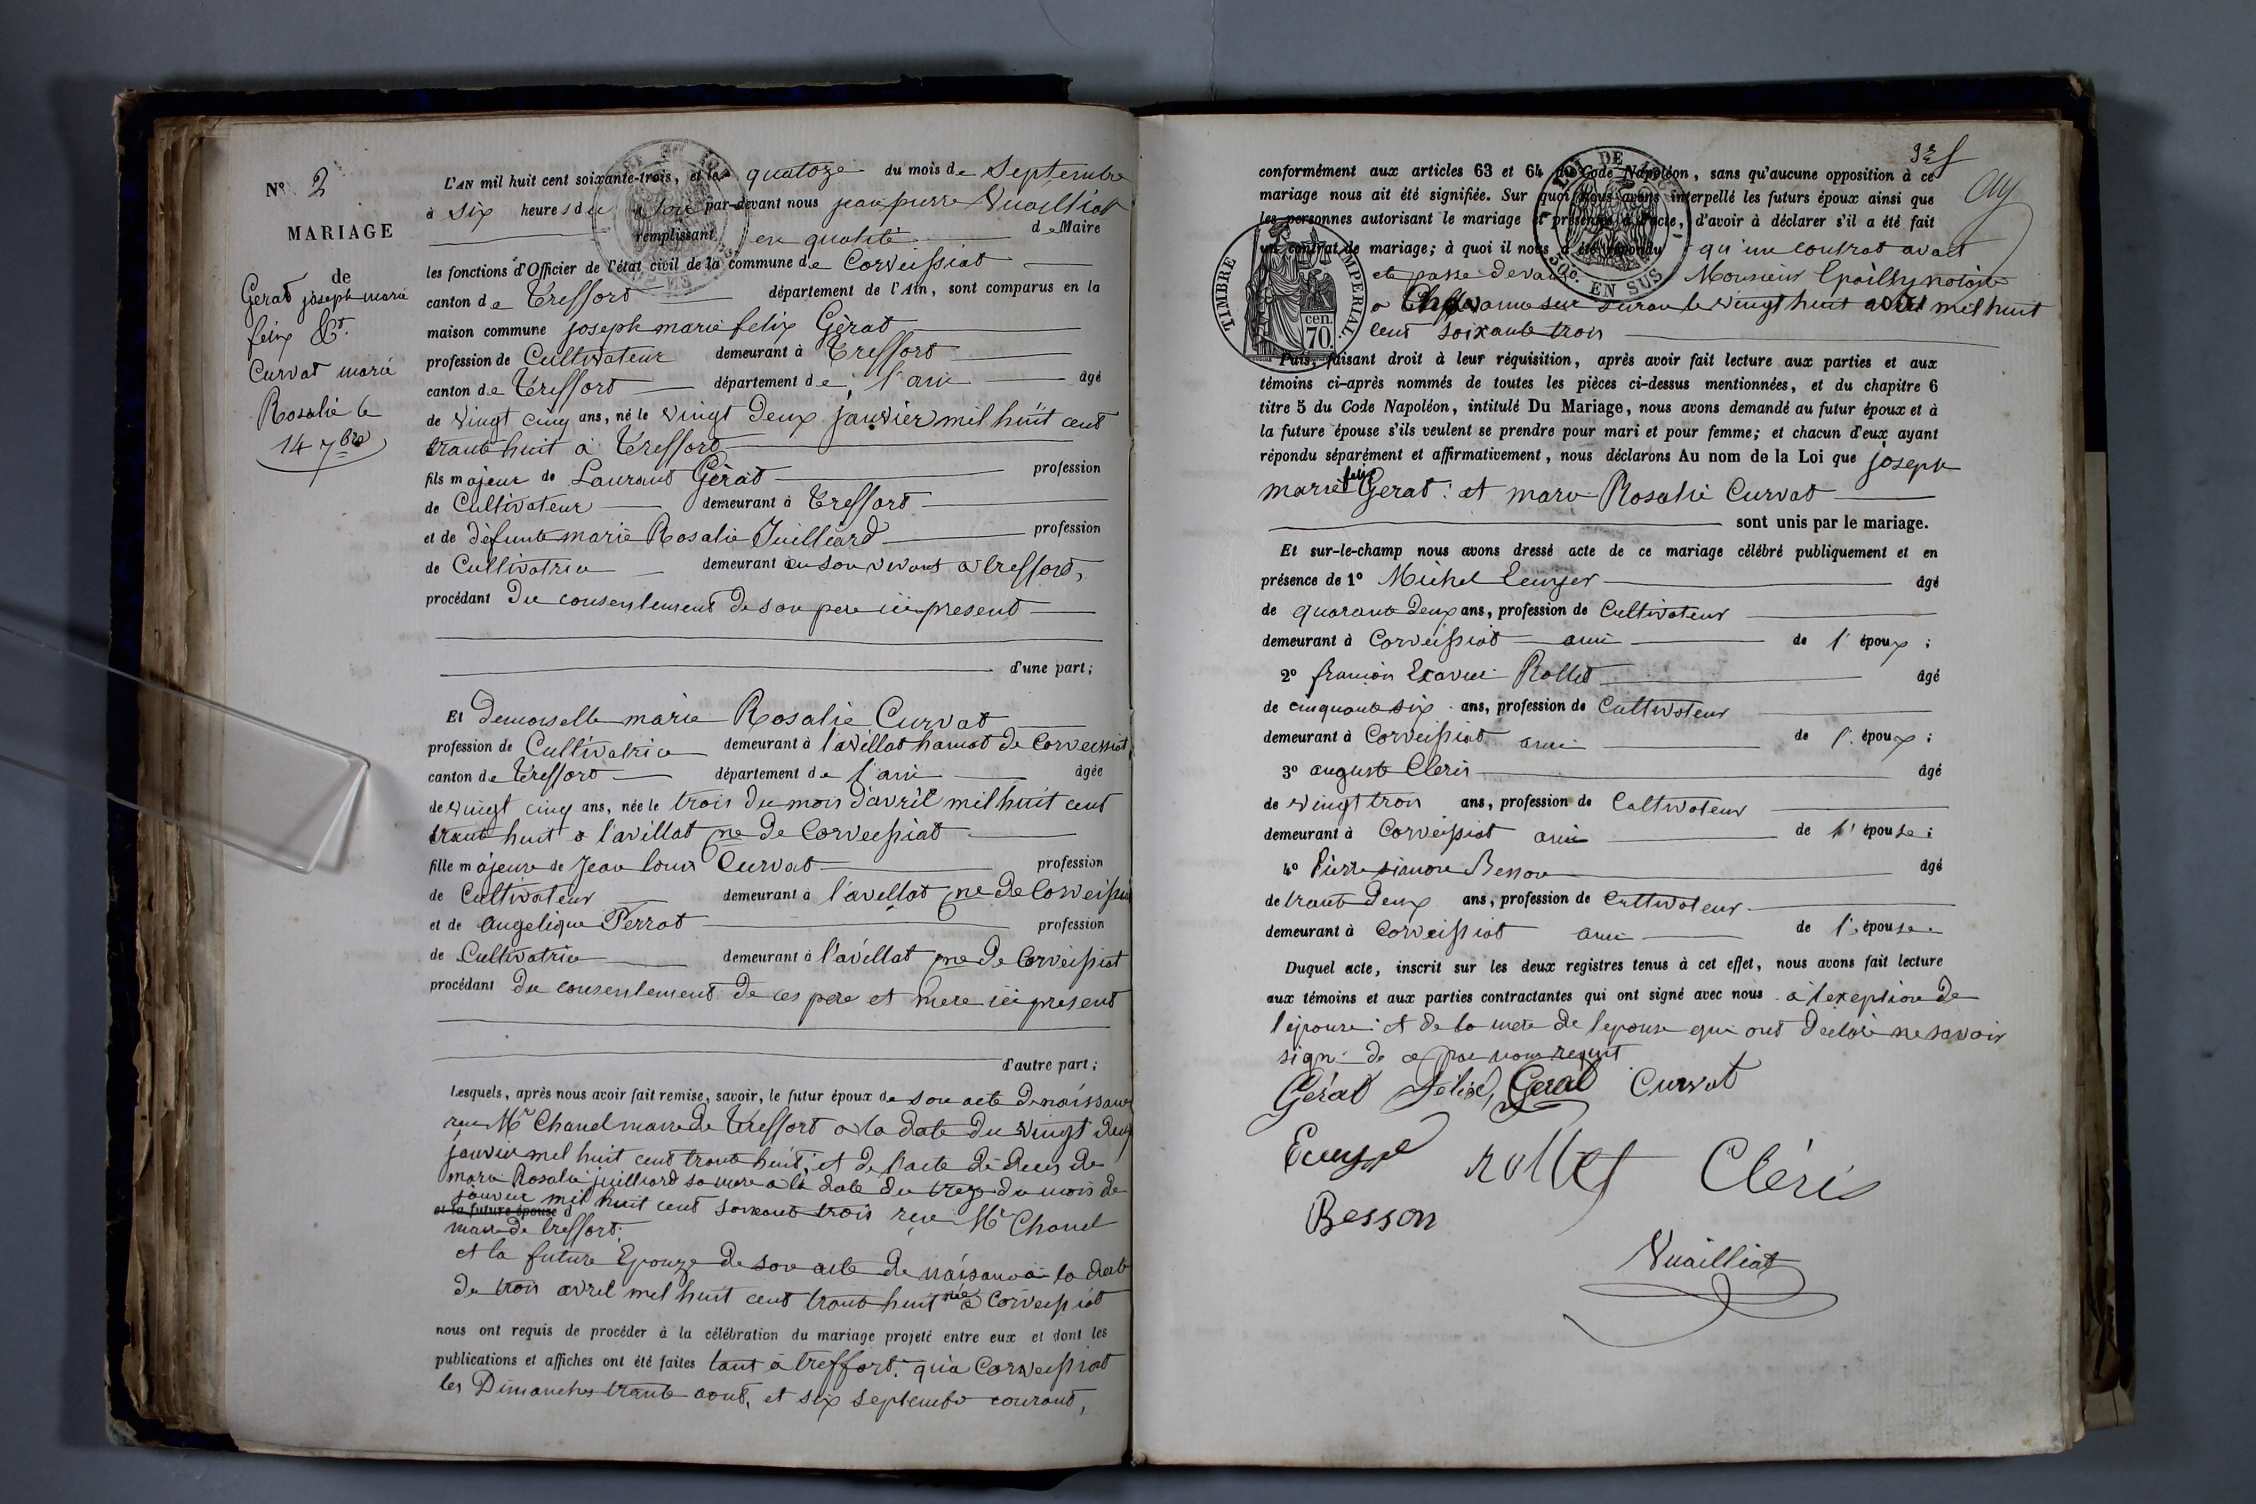 N° 2
MARIAGE
de
Gerat joseph marie
felix &t.
Curvat marie
Rosalie le
14 7bre
L'AN mil huit cent soixante-trois, et le quatoze du mois de Septembre
à six heures du soir par-devant nous jean pierre Vuailliat
remplissant en qualité de Maire
les fonctions d'Officier de l'état civil de la commune de Corveissiat
canton de Treffort département de l'Ain, sont comparus en la
maison commune joseph marie felix Gèrat
profession de Cultivateur demeurant à Treffort
canton de Treffort département de l'ain âgé
de vingt cinq ans, né le vingt deux janvier mil huit cent
trante huit à Treffort
fils majeur de Laurant Gèrat profession
de Cultivateur demeurant à Treffort
et de défunte marie Rosalie Juilliard profession
de Cultivatrice demeurant en son vivant a treffort,
procédant du consentement de son pere ici present
d'une part;
Et demoiselle marie Rosalie Curvat
profession de Cultivatrice demeurant à l'avillat hamot de Corveissiat
canton de Treffort département de l'ain âgée
de vingt cinq ans, née le trois du mois d'avril mil huit cent
trante huit a l'avillat cne de Corveissiat
fille majeure de Jean louis Curvat profession
de Cultivateur demeurant à l'avillat cne de Corveissiat
et de angelique Perrat profession
de Cultivatrice demeurant à l'avillat cne de Corveissiat
procédant du consentement de ces pere et mere ici present
d'autre part;
Lesquels, après nous avoir fait remise, savoir, le futur époux de son acte de naissance
reçu Mr Chanel maire de Treffort a la date du vingt deux
janvier mil huit cent trante huit; et de l'acte de deces de
marie Rosalie juilliard sa mere a la date du treze du mois de
janvier mil huit cent soixante trois reçu Mr Chanel
et la future épouse d
maire de treffort.
et la future Epouze de son acte de naissance a la date
du trois avril mil huit cent trante huit née a Corveissiat
nous ont requis de procéder à la célébration du mariage projeté entre eux et dont les
publications et affiches ont été faites tant a treffort. qu'a Corveissiat
les Dimanches trante aout, et six septembre courant,
conformément aux articles 63 et 64 du Code Napoléon, sans qu'aucune opposition à ce
mariage nous ait été signifiée. Sur quoi nous avons interpellé les futurs époux ainsi que
les personnes autorisant le mariage et présentes à l'acte, d'avoir à déclarer s'il a été fait
un contrat de mariage; à quoi il nous a été répondu qu'un contrat avait
ete passe devant Monsieur Epailly notaire
a Chavanne sur suran le vingt huit aout mil huit
cent soixante trois
TIMBRE IMPERIAL
70 cen.
LOI DE
50c. EN SUS
Puis, faisant droit à leur réquisition, après avoir fait lecture aux parties et aux
témoins ci-après nommés de toutes les pièces ci-dessus mentionnées, et du chapitre 6
titre 5 du Code Napoléon, intitulé Du Mariage, nous avons demandé au futur époux et à
la future épouse s'ils veulent se prendre pour mari et pour femme; et chacun d'eux ayant
répondu séparément et affirmativement, nous déclarons Au nom de la Loi que joseph
marie felix Gerat: et marie Rosalie Curvat
sont unis par le mariage.
Et sur-le-champ nous avons dressé acte de ce mariage célébré publiquement et en
présence de 1° Michel Ecuyer âgé
de quarante deux ans, profession de Cultivateur
demeurant à Corveissiat ami de l'époux;
2° Rollet âgé
de cinquante six ans, profession de Cultivateur
demeurant à Corveissiat ami de l'époux;
3° auguste Cleris âgé
de vingt trois ans, profession de Cultivateur
demeurant à Corveissiat ami de l'épouse;
4° Pierre simon Besson âgé
de trante deux ans, profession de Cultivateur
demeurant à Corveissiat ami de l'épouse.
Duquel acte, inscrit sur les deux registres tenus à cet effet, nous avons fait lecture
aux témoins et aux parties contractantes qui ont signé avec nous a l'exeption de
l'epouse: et de la mere de l'epouse qui ont declaré ne savoir
signé de ce par nous requit
Gérat Félix, Gerat Curvat
Ecuyer rollet Cléris
Besson
Vuailliat